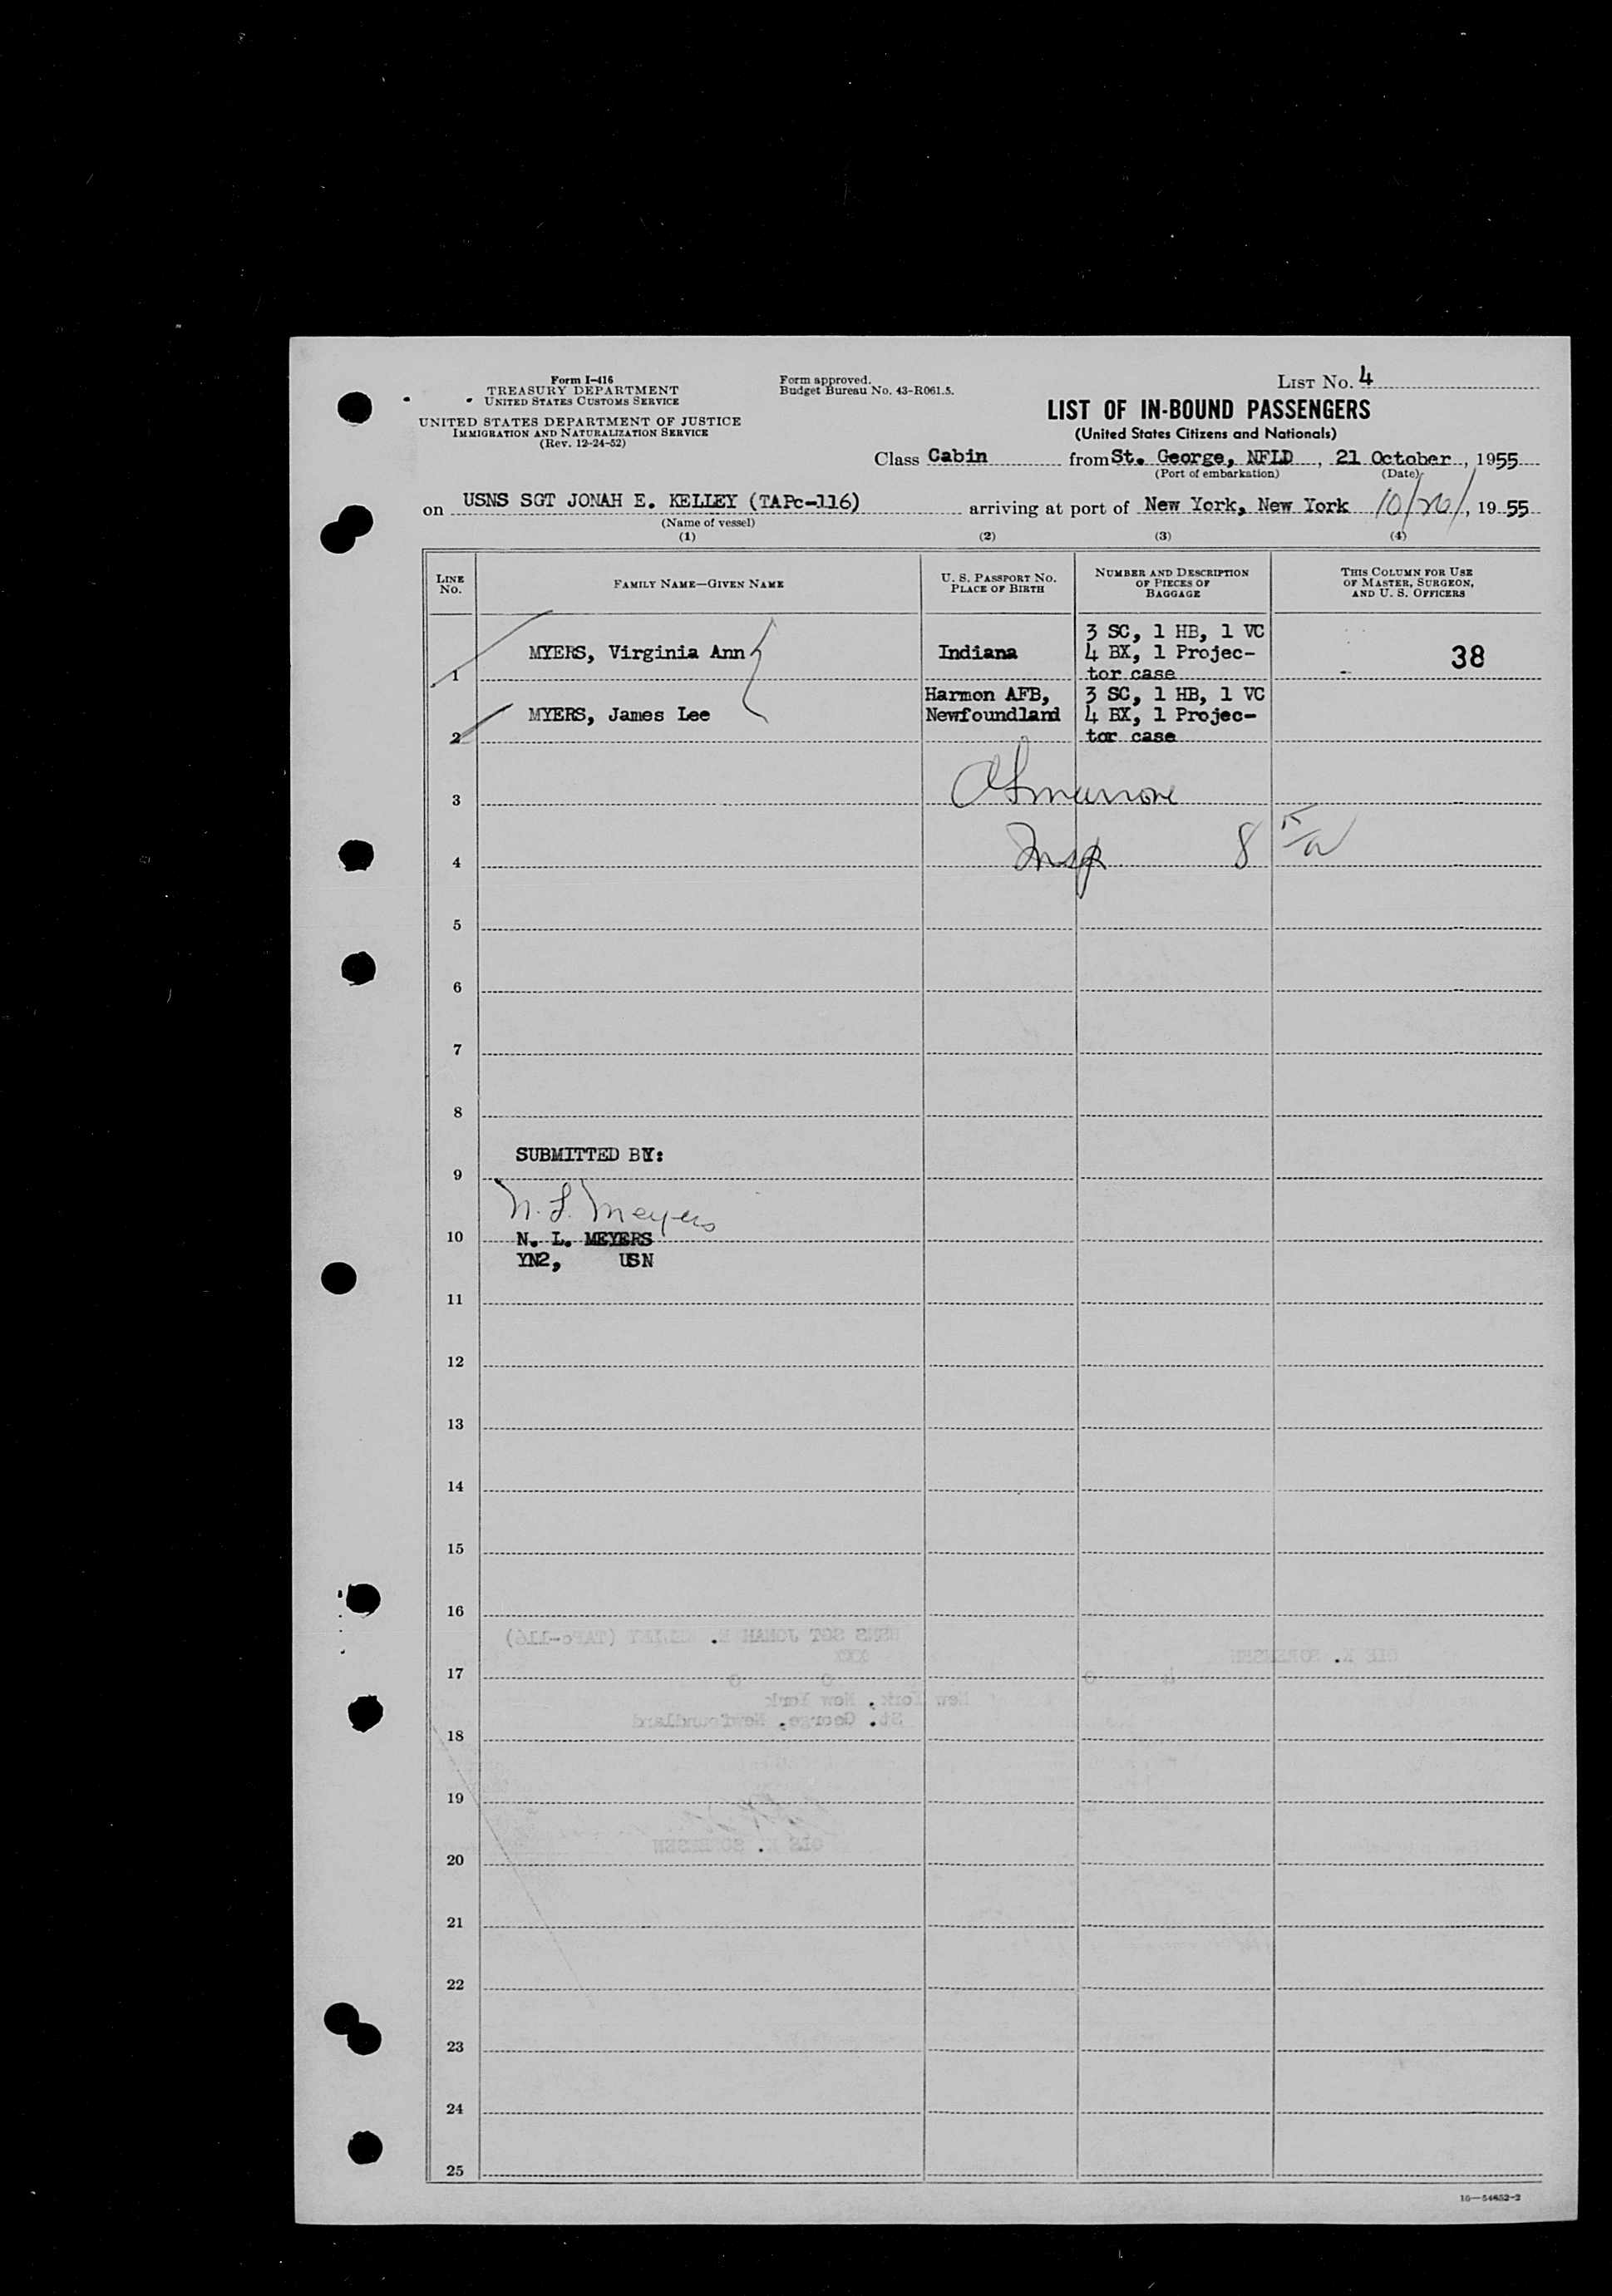 Form I-416
TREASURY DEPARTMENT
UNITED STATES CUSTOMS SERVICE
UNITED STATES DEPARTMENT OF JUSTICE
IMMIGRATION AND NATURALIZATION SERVICE
(Rev. 12-24-52)
Form approved.
Budget Bureau No. 43-R061.5.
LIST No. 4
LIST OF IN-BOUND PASSENGERS
(United States Citizens and Nationals)
Class Cabin from St. George, NFLD, 21 October, 1955
(Port of embarkation) (Date)
on USNS SGT JONAH E. KELLEY (TAPc-116) arriving at port of New York, New York 10/26/, 1955
(Name of vessel)
(1) (2) (3) (4)
LINE No. FAMILY NAME—GIVEN NAME U. S. PASSPORT NO. PLACE OF BIRTH NUMBER AND DESCRIPTION OF PIECES OF BAGGAGE THIS COLUMN FOR USE OF MASTER, SURGEON, AND U. S. OFFICERS
1 MYERS, Virginia Ann Indiana 3 SC, 1 HB, 1 VC 4 BX, 1 Projec-tor case 38
2 MYERS, James Lee Harmon AFB, Newfoundland 3 SC, 1 HB, 1 VC 4 BX, 1 Projec-tor case
3
4 Insp 8
5
6
7
8
SUBMITTED BY:
9
N. L. Meyers
10 N. L. MEYERS
YN2, USN
11
12
13
14
15
16
USNS SGT JONAH E. KELLEY (TAPc-116)
OLE K. SORENSEN
17
New York, New York
St. George, Newfoundland
18
19
OLE K. SORENSEN
20
21
22
23
24
25
16—54652-2